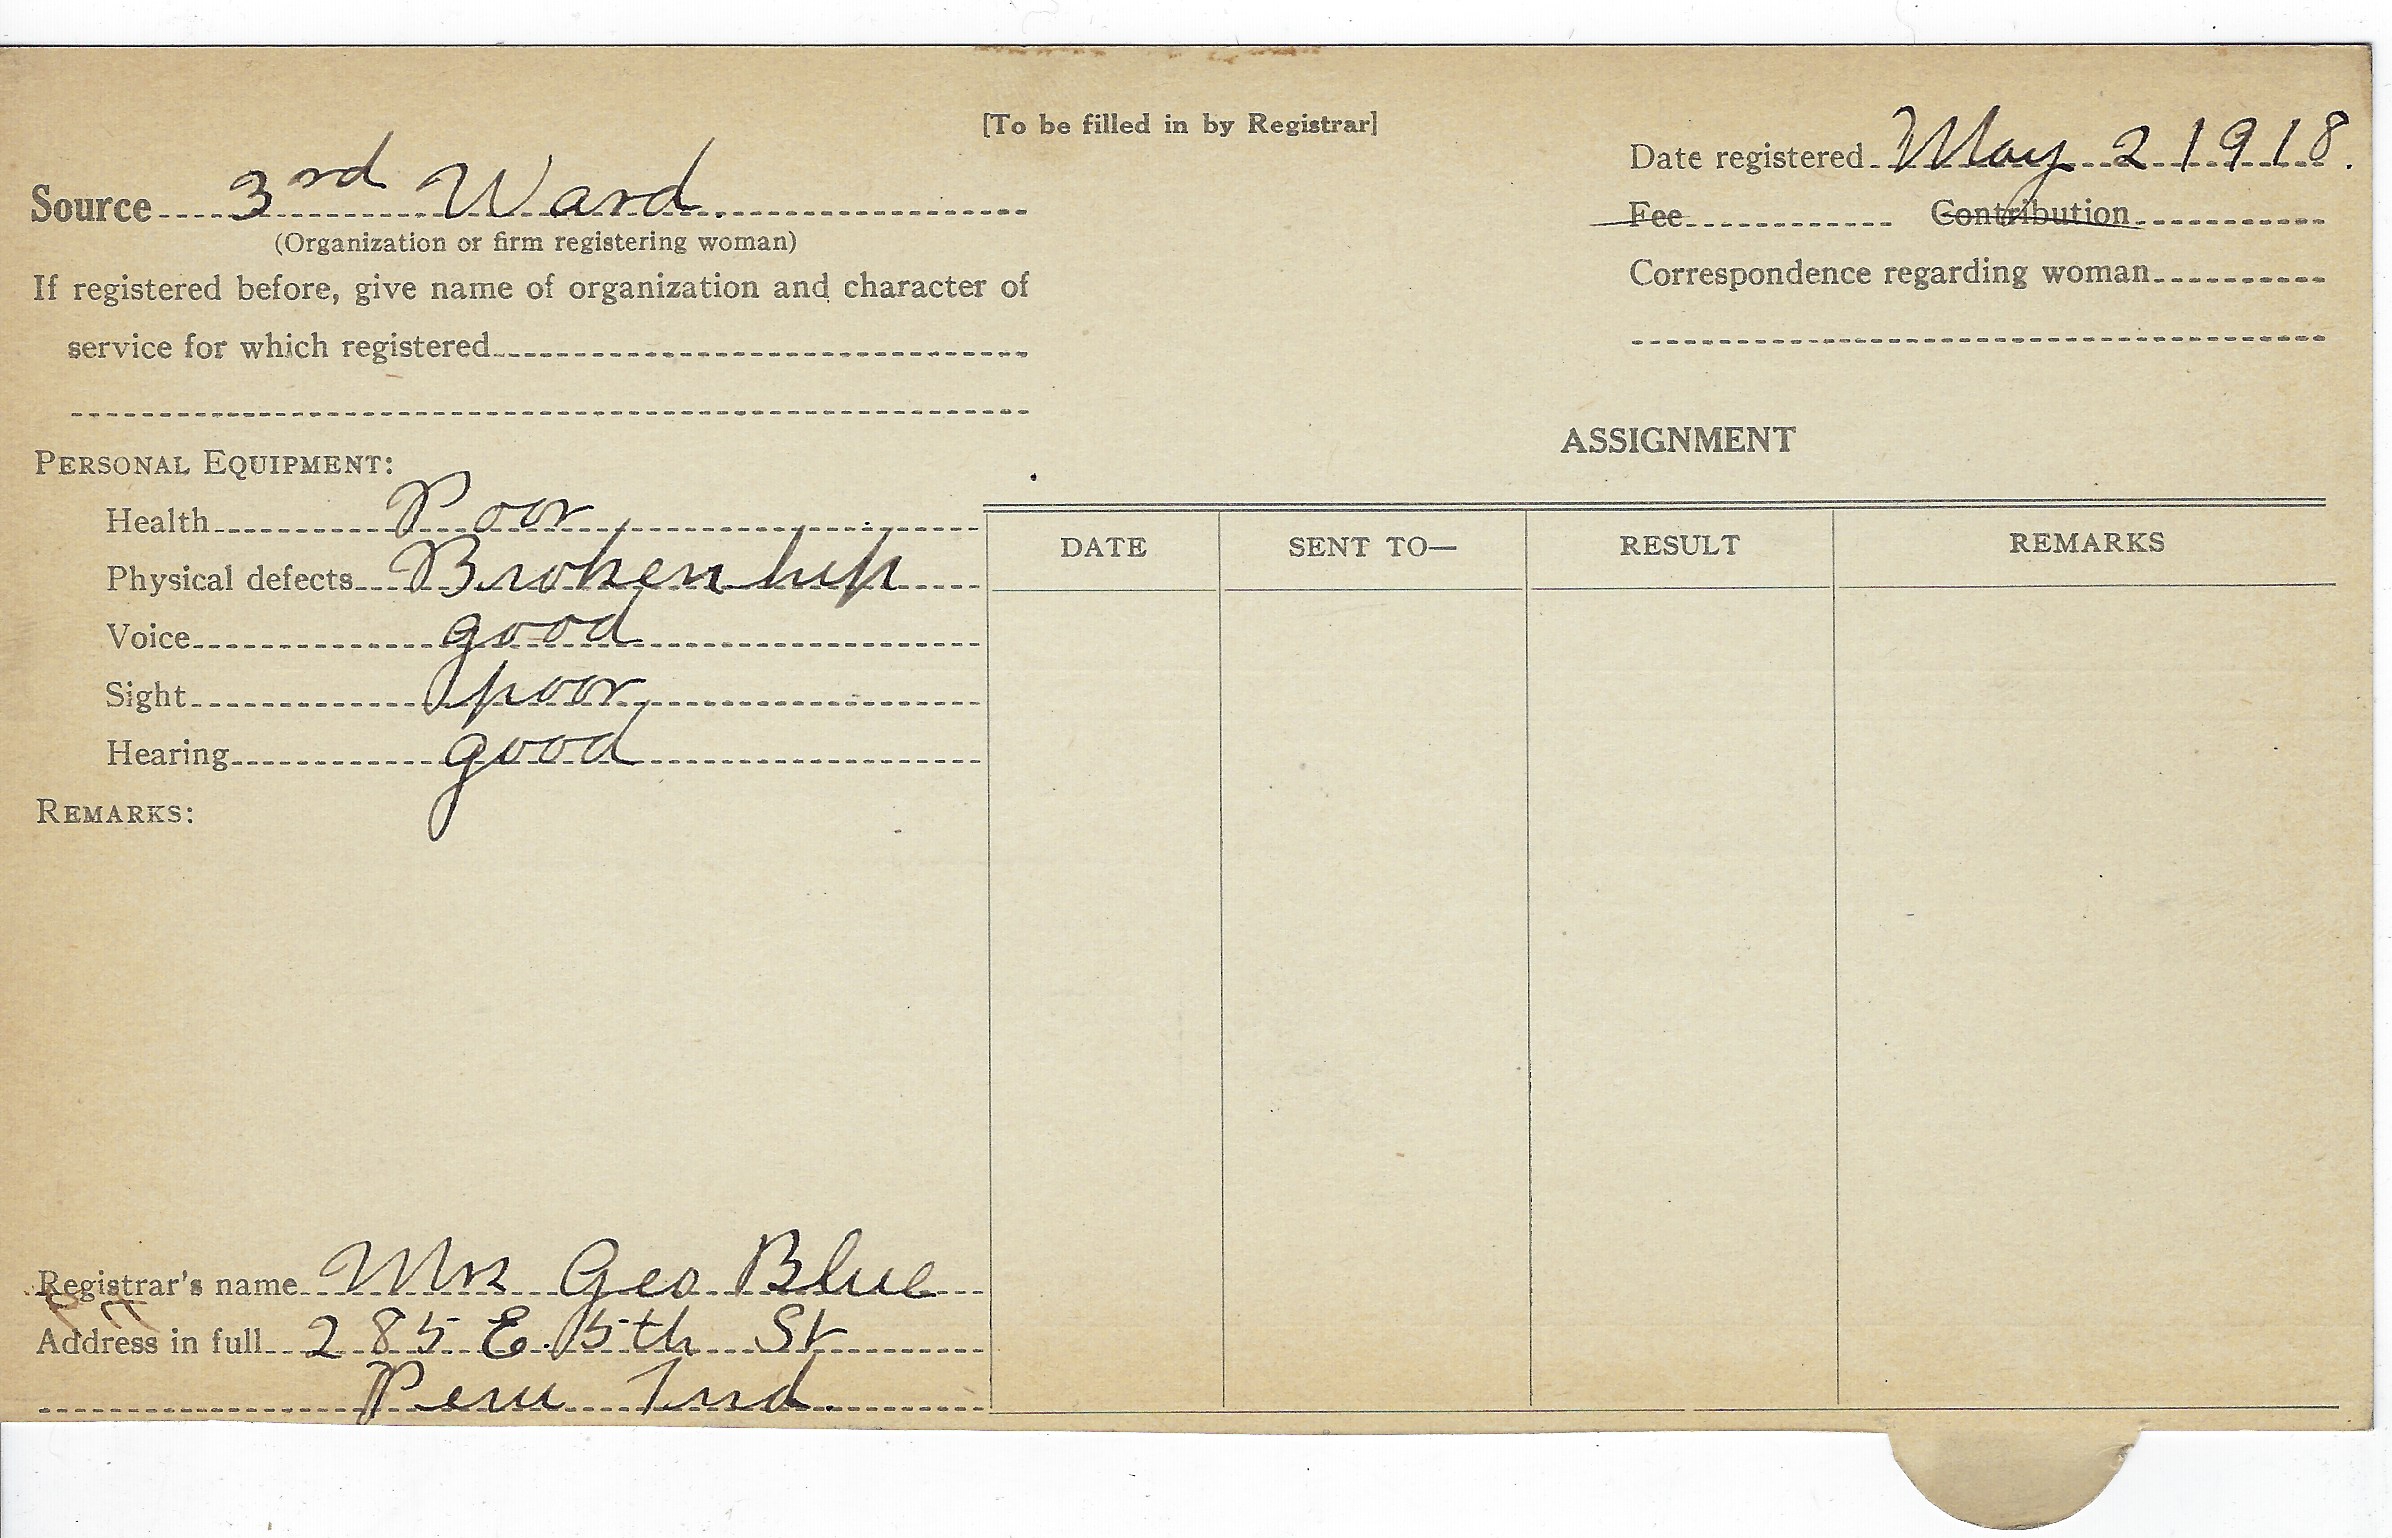 [To be filled in by Registrar]
Source 3rd Ward.
(Organization or firm registering woman)
If registered before, give name of organization and character of
service for which registered
Date registered May 2 1918.
Fee Contribution
Correspondence regarding woman
PERSONAL EQUIPMENT:
Health Poor
Physical defects Broken hip
Voice good
Sight poor
Hearing good
REMARKS:
ASSIGNMENT
DATE SENT TO— RESULT REMARKS
Registrar's name Mrs Geo Blue
Address in full 285 E. 5th St
Peru Ind.